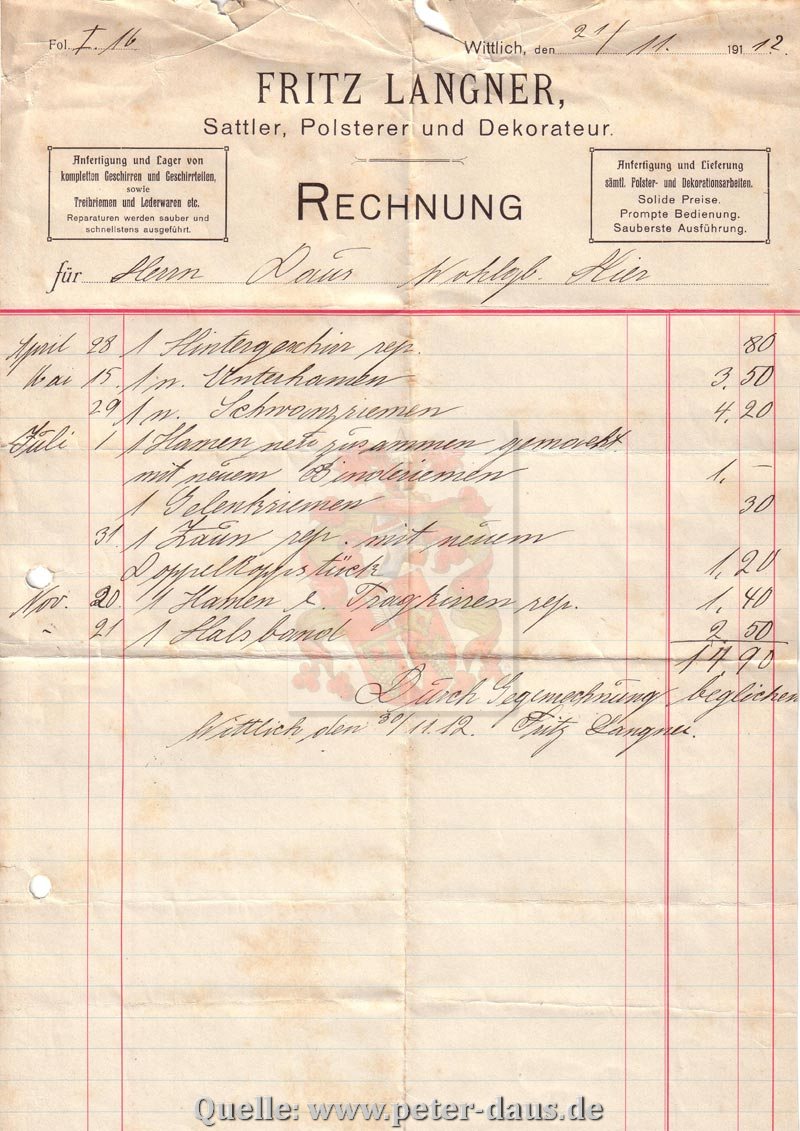 Fol. I. 16
Wittlich, den 21/11. 1912.
FRITZ LANGNER,
Sattler, Polsterer und Dekorateur.
Anfertigung und Lager von
kompletten Geschirren und Geschirrteilen,
sowie
Treibriemen und Lederwaren etc.
Reparaturen werden sauber und
schnellstens ausgeführt.
RECHNUNG
Anfertigung und Lieferung
sämtl. Polster- und Dekorationsarbeiten.
Solide Preise.
Prompte Bedienung.
Sauberste Ausführung.
für Herrn Daus Wohlgb. Hier
April 28 1 Hintergeschirr rep. 80
Mai 15. 1 n. Unterhamen 3,50
29 1 n. Schwanzriemen 4,20
Juli 1 1 Hamen zusammen gemacht
mit neuem Binderiemen 1,-
1 Gelenkriemen 30
31. 1 Zaun rep. mit neuem
Doppelkoppstück 1,20
Nov. 20. 1 Hamen & rep. 1,40
- 21 1 Halsband 2 50
14 90
Durch Gegenrechnung beglichen
Wittlich den 30/11.12. Fritz Langner.
Quelle: www.peter-daus.de